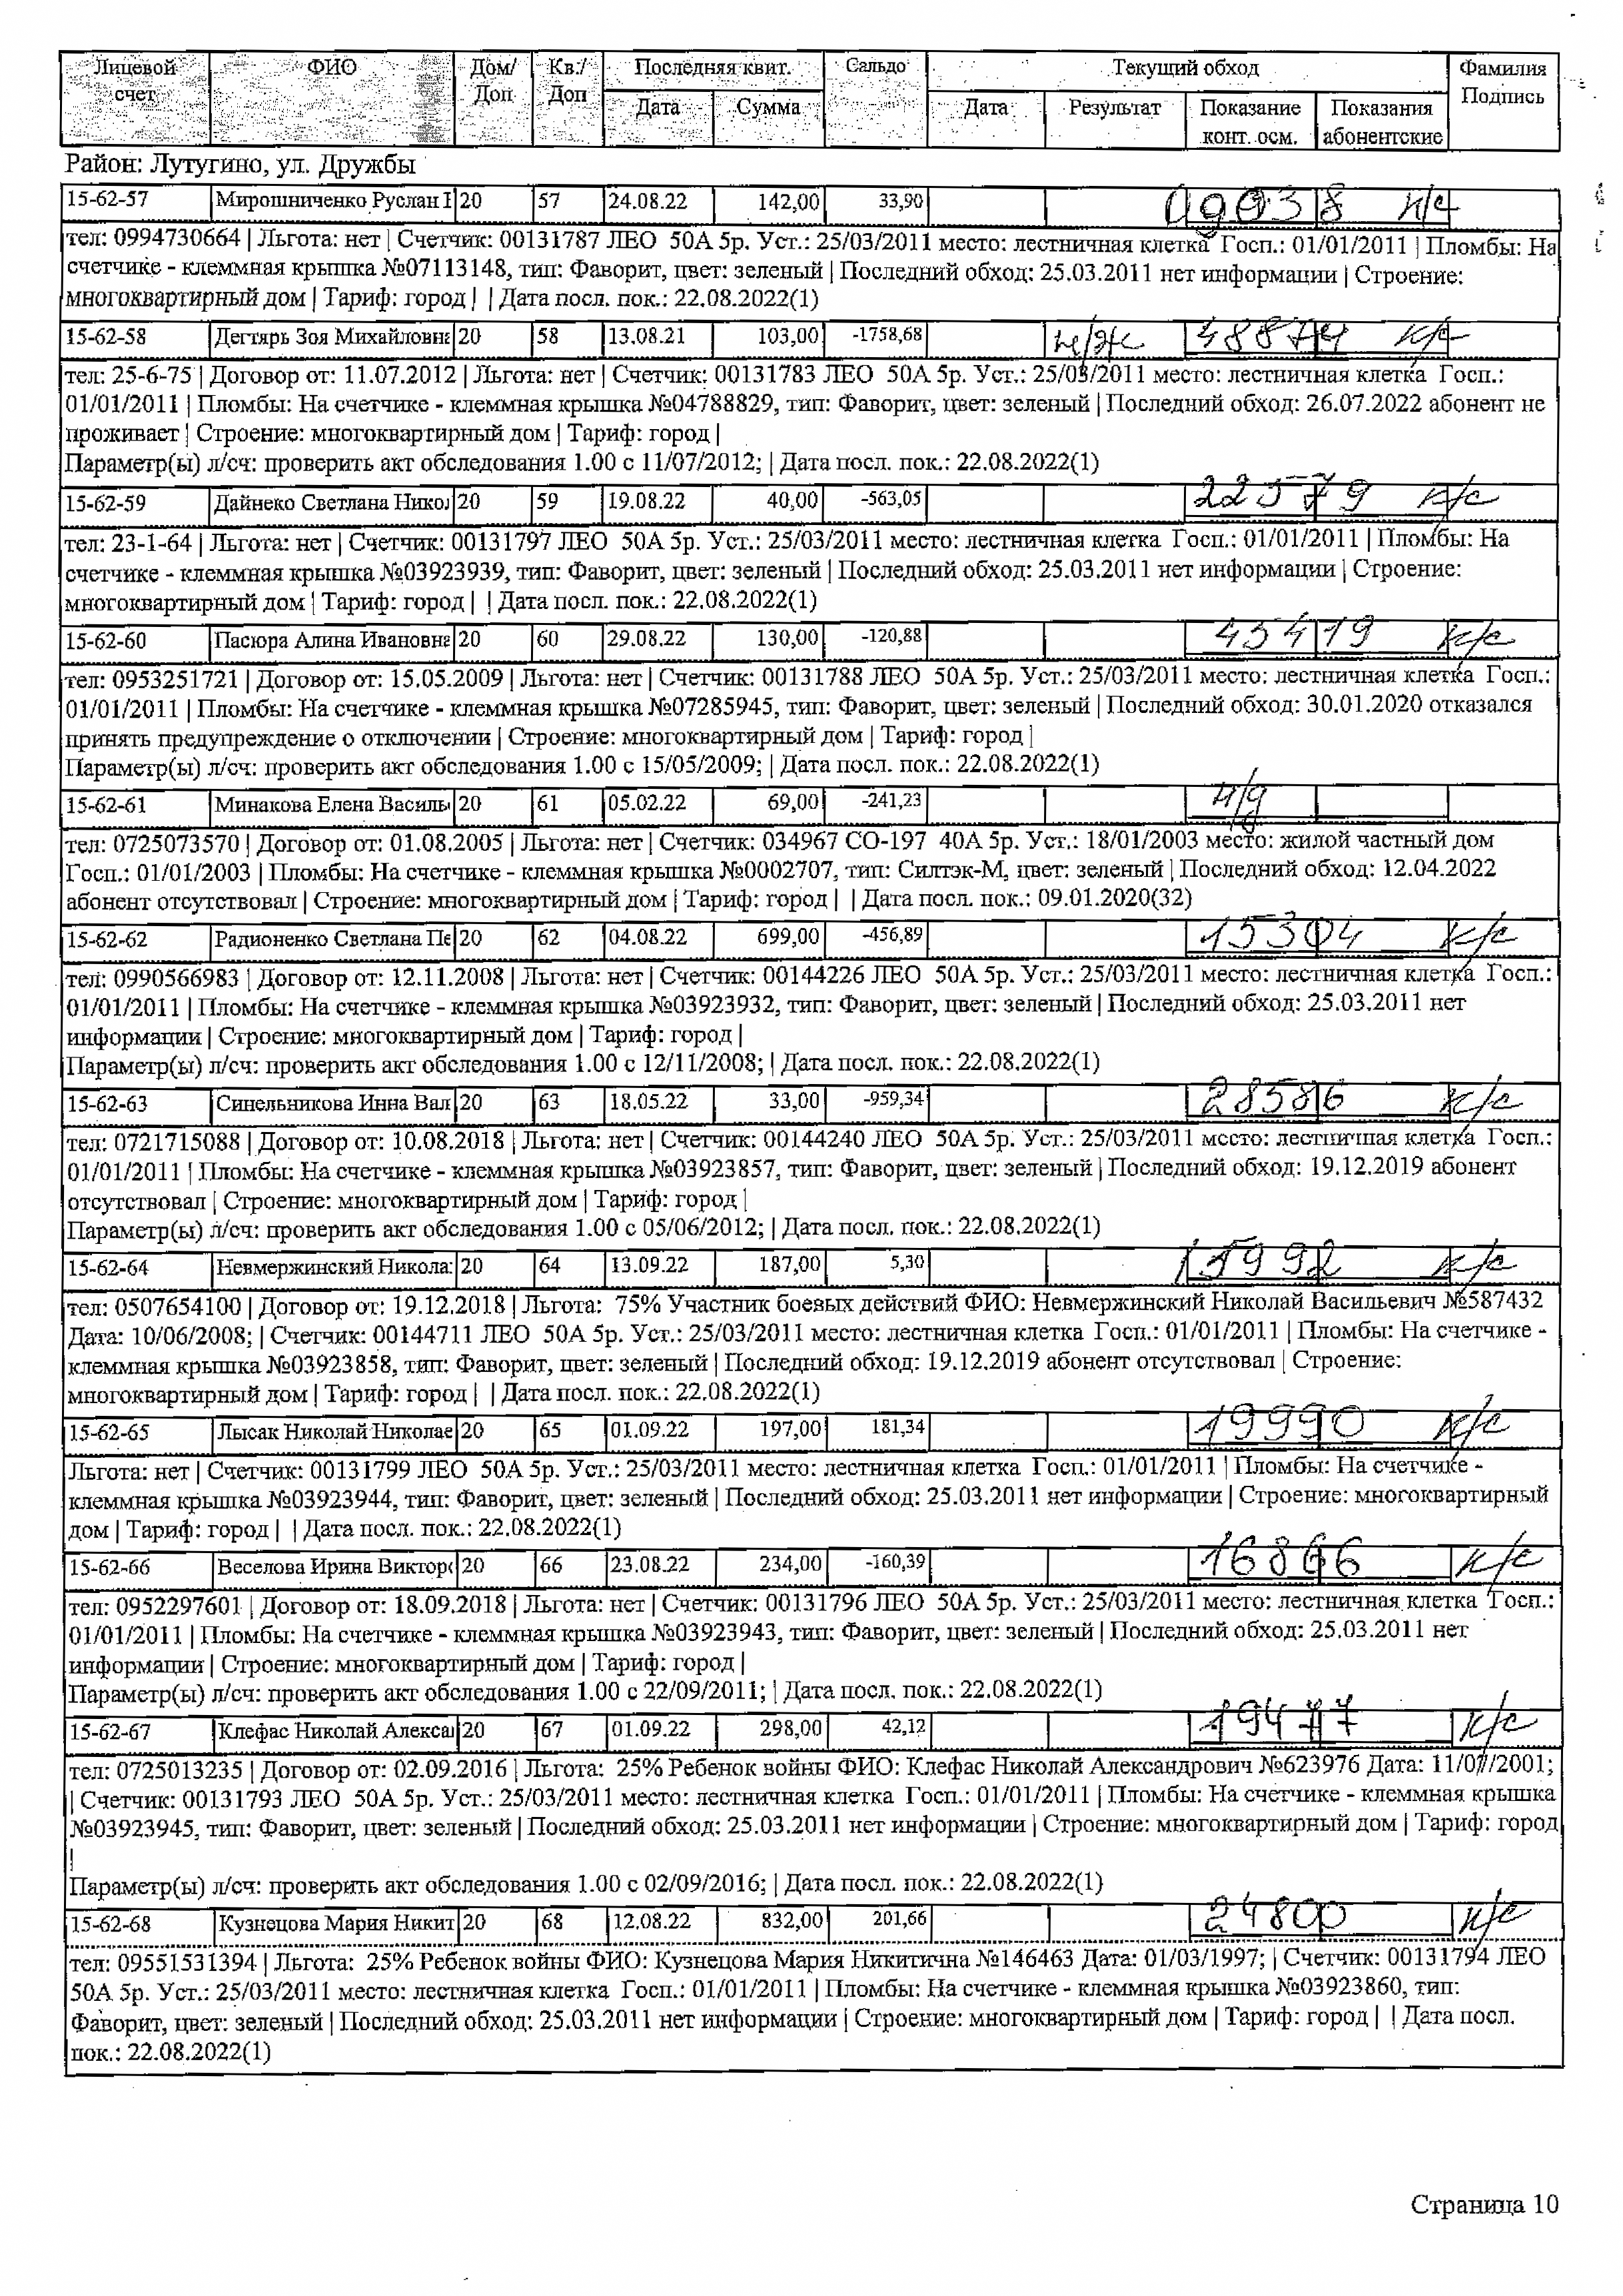 Лицевой счет ФИО Дом/ Доп Кв./ Доп Последняя квит. Сальдо Текущий обход Фамилия Подпись
Дата Сумма Дата Результат Показание конт. осм. Показания абонентские
Район: Лутугино, ул. Дружбы
15-62-57 Мирошниченко Руслан 20 57 24.08.22 142,00 33,90 к/с
тел: 0994730664 | Льгота: нет | Счетчик: 00131787 ЛЕО 50А 5р. Уст.: 25/03/2011 место: лестничная клетка Госп.: 01/01/2011 | Пломбы: На
счетчике - клеммная крышка №07113148, тип: Фаворит, цвет: зеленый | Последний обход: 25.03.2011 нет информации | Строение:
многоквартирный дом | Тариф: город | | Дата посл. пок.: 22.08.2022(1)
15-62-58 Дегтярь Зоя Михайловна 20 58 13.08.21 103,00 -1758,68 н/ж 48874 к/с
тел: 25-6-75 | Договор от: 11.07.2012 | Льгота: нет | Счетчик: 00131783 ЛЕО 50А 5р. Уст.: 25/03/2011 место: лестничная клетка Госп.:
01/01/2011 | Пломбы: На счетчике - клеммная крышка №04788829, тип: Фаворит, цвет: зеленый | Последний обход: 26.07.2022 абонент не
проживает | Строение: многоквартирный дом | Тариф: город |
Параметр(ы) л/сч: проверить акт обследования 1.00 с 11/07/2012; | Дата посл. пок.: 22.08.2022(1)
15-62-59 Дайнеко Светлана Никол 20 59 19.08.22 40,00 -563,05 22579 к/с
тел: 23-1-64 | Льгота: нет | Счетчик: 00131797 ЛЕО 50А 5р. Уст.: 25/03/2011 место: лестничная клетка Госп.: 01/01/2011 | Пломбы: На
счетчике - клеммная крышка №03923939, тип: Фаворит, цвет: зеленый | Последний обход: 25.03.2011 нет информации | Строение:
многоквартирный дом | Тариф: город | | Дата посл. пок.: 22.08.2022(1)
15-62-60 Пасюра Алина Ивановна 20 60 29.08.22 130,00 -120,88 45419 к/с
тел: 0953251721 | Договор от: 15.05.2009 | Льгота: нет | Счетчик: 00131788 ЛЕО 50А 5р. Уст.: 25/03/2011 место: лестничная клетка Госп.:
01/01/2011 | Пломбы: На счетчике - клеммная крышка №07285945, тип: Фаворит, цвет: зеленый | Последний обход: 30.01.2020 отказался
принять предупреждение о отключении | Строение: многоквартирный дом | Тариф: город |
Параметр(ы) л/сч: проверить акт обследования 1.00 с 15/05/2009; | Дата посл. пок.: 22.08.2022(1)
15-62-61 Минакова Елена Василь 20 61 05.02.22 69,00 -241,23 н/д
тел: 0725073570 | Договор от: 01.08.2005 | Льгота: нет | Счетчик: 034967 СО-197 40А 5р. Уст.: 18/01/2003 место: жилой частный дом
Госп.: 01/01/2003 | Пломбы: На счетчике - клеммная крышка №0002707, тип: Силтэк-М, цвет: зеленый | Последний обход: 12.04.2022
абонент отсутствовал | Строение: многоквартирный дом | Тариф: город | | Дата посл. пок.: 09.01.2020(32)
15-62-62 Радионенко Светлана Пе 20 62 04.08.22 699,00 -456,89 15304 к/с
тел: 0990566983 | Договор от: 12.11.2008 | Льгота: нет | Счетчик: 00144226 ЛЕО 50А 5р. Уст.: 25/03/2011 место: лестничная клетка Госп.:
01/01/2011 | Пломбы: На счетчике - клеммная крышка №03923932, тип: Фаворит, цвет: зеленый | Последний обход: 25.03.2011 нет
информации | Строение: многоквартирный дом | Тариф: город |
Параметр(ы) л/сч: проверить акт обследования 1.00 с 12/11/2008; | Дата посл. пок.: 22.08.2022(1)
15-62-63 Синельникова Инна Вал 20 63 18.05.22 33,00 -959,34 28586 к/с
тел: 0721715088 | Договор от: 10.08.2018 | Льгота: нет | Счетчик: 00144240 ЛЕО 50А 5р. Уст.: 25/03/2011 место: лестничная клетка Госп.:
01/01/2011 | Пломбы: На счетчике - клеммная крышка №03923857, тип: Фаворит, цвет: зеленый | Последний обход: 19.12.2019 абонент
отсутствовал | Строение: многоквартирный дом | Тариф: город |
Параметр(ы) л/сч: проверить акт обследования 1.00 с 05/06/2012; | Дата посл. пок.: 22.08.2022(1)
15-62-64 Невмержинский Никола 20 64 13.09.22 187,00 5,30 15992 к/с
тел: 0507654100 | Договор от: 19.12.2018 | Льгота: 75% Участник боевых действий ФИО: Невмержинский Николай Васильевич №587432
Дата: 10/06/2008; | Счетчик: 00144711 ЛЕО 50А 5р. Уст.: 25/03/2011 место: лестничная клетка Госп.: 01/01/2011 | Пломбы: На счетчике -
клеммная крышка №03923858, тип: Фаворит, цвет: зеленый | Последний обход: 19.12.2019 абонент отсутствовал | Строение:
многоквартирный дом | Тариф: город | | Дата посл. пок.: 22.08.2022(1)
15-62-65 Лысак Николай Николае 20 65 01.09.22 197,00 181,34 19990 к/с
Льгота: нет | Счетчик: 00131799 ЛЕО 50А 5р. Уст.: 25/03/2011 место: лестничная клетка Госп.: 01/01/2011 | Пломбы: На счетчике -
клеммная крышка №03923944, тип: Фаворит, цвет: зеленый | Последний обход: 25.03.2011 нет информации | Строение: многоквартирный
дом | Тариф: город | | Дата посл. пок.: 22.08.2022(1)
15-62-66 Веселова Ирина Виктор 20 66 23.08.22 234,00 -160,39 16866 к/с
тел: 0952297601 | Договор от: 18.09.2018 | Льгота: нет | Счетчик: 00131796 ЛЕО 50А 5р. Уст.: 25/03/2011 место: лестничная клетка Госп.:
01/01/2011 | Пломбы: На счетчике - клеммная крышка №03923943, тип: Фаворит, цвет: зеленый | Последний обход: 25.03.2011 нет
информации | Строение: многоквартирный дом | Тариф: город |
Параметр(ы) л/сч: проверить акт обследования 1.00 с 22/09/2011; | Дата посл. пок.: 22.08.2022(1)
15-62-67 Клефас Николай Алекса 20 67 01.09.22 298,00 42,12 19477 к/с
тел: 0725013235 | Договор от: 02.09.2016 | Льгота: 25% Ребенок войны ФИО: Клефас Николай Александрович №623976 Дата: 11/07/2001;
| Счетчик: 00131793 ЛЕО 50А 5р. Уст.: 25/03/2011 место: лестничная клетка Госп.: 01/01/2011 | Пломбы: На счетчике - клеммная крышка
№03923945, тип: Фаворит, цвет: зеленый | Последний обход: 25.03.2011 нет информации | Строение: многоквартирный дом | Тариф: город
|
Параметр(ы) л/сч: проверить акт обследования 1.00 с 02/09/2016; | Дата посл. пок.: 22.08.2022(1)
15-62-68 Кузнецова Мария Никит 20 68 12.08.22 832,00 201,66 24800 к/с
тел: 09551531394 | Льгота: 25% Ребенок войны ФИО: Кузнецова Мария Никитична №146463 Дата: 01/03/1997; | Счетчик: 00131794 ЛЕО
50А 5р. Уст.: 25/03/2011 место: лестничная клетка Госп.: 01/01/2011 | Пломбы: На счетчике - клеммная крышка №03923860, тип:
Фаворит, цвет: зеленый | Последний обход: 25.03.2011 нет информации | Строение: многоквартирный дом | Тариф: город | | Дата посл.
пок.: 22.08.2022(1)
Страница 10